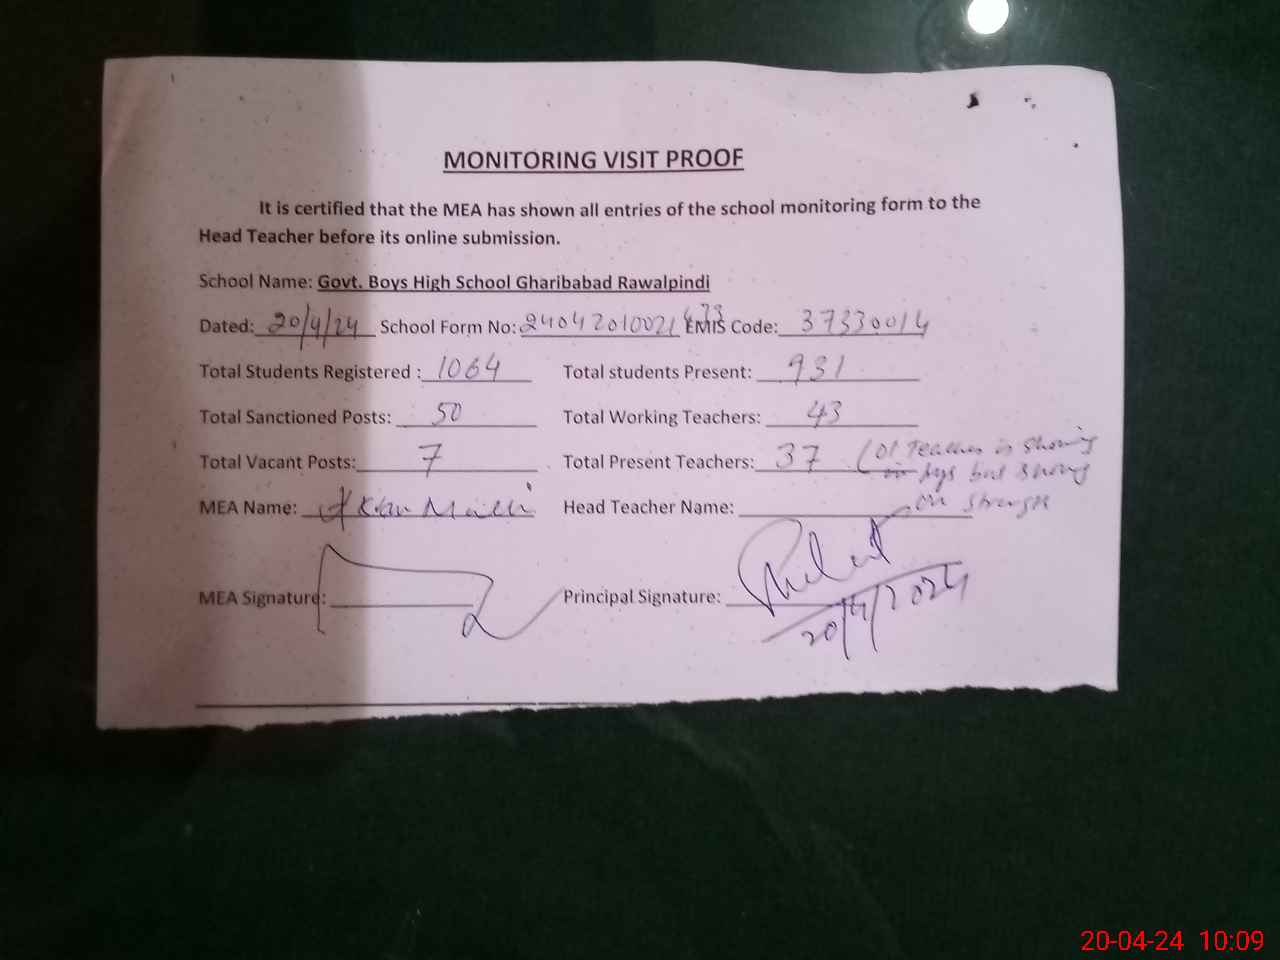 MONITORING VISIT PROOF
It is certified that the MEA has shown all entries of the school monitoring form to the
Head Teacher before its online submission.
School Name: Govt. Boys High School Gharibabad Rawalpindi
Dated: 20/4/24 School Form No: 24042010021 EMIS Code: 37330014
Total Students Registered : 1064 Total students Present: 931
Total Sanctioned Posts: 50 Total Working Teachers: 43
Total Vacant Posts: 7 Total Present Teachers: 37 (01 Teacher is showing
but showing
MEA Name: Head Teacher Name: on strength
MEA Signature: Principal Signature:
20/4/2024
20-04-24 10:09